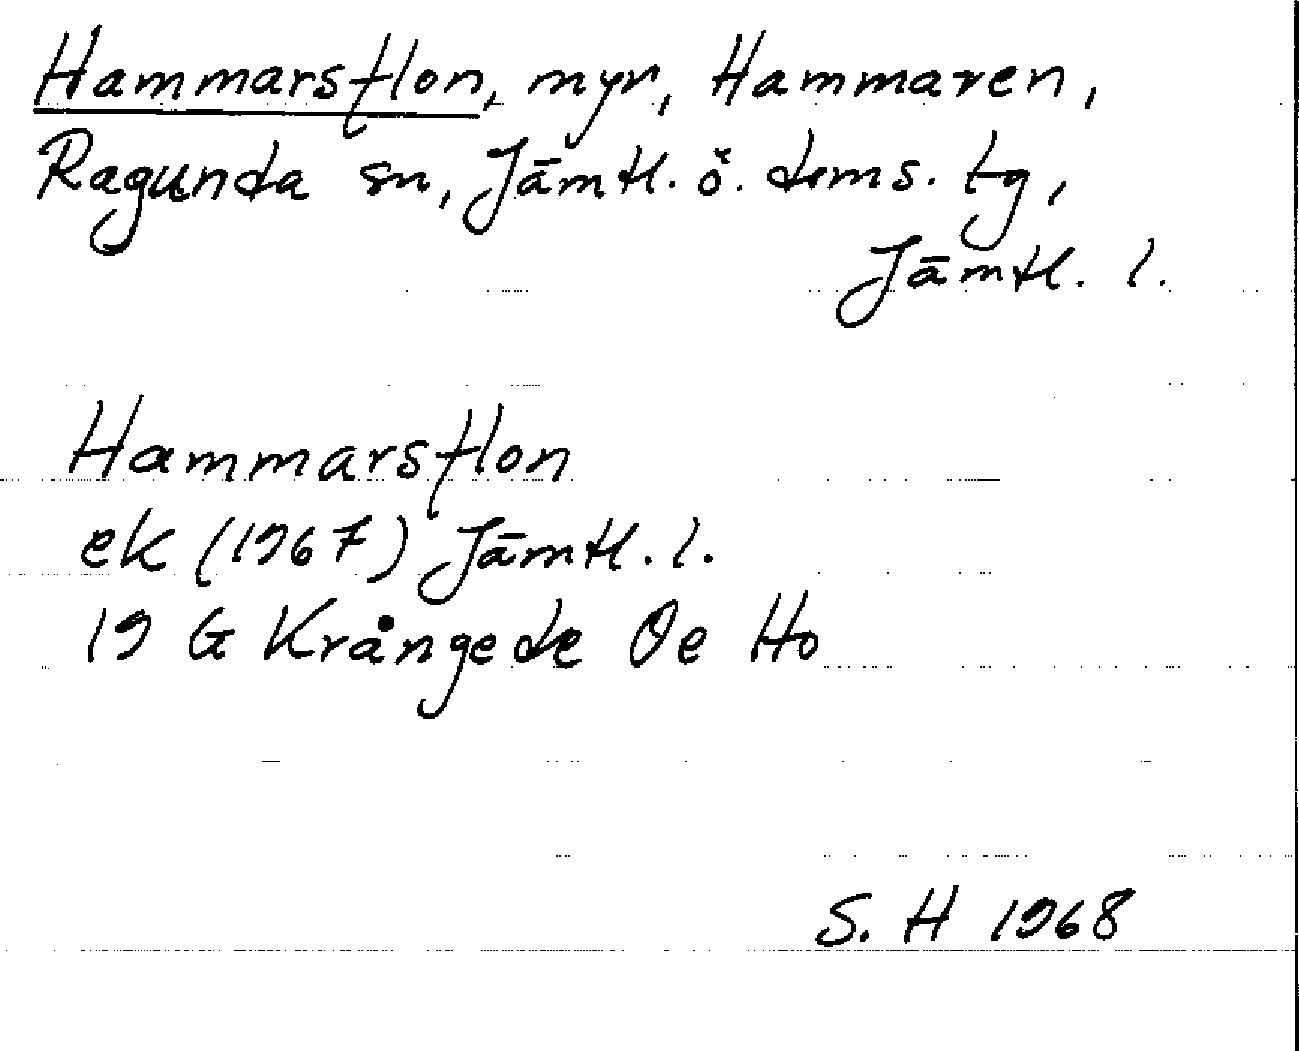 Hammarsflon, myr, Hammaren,
Ragunda sn, Jämtl. ö. doms. tg,
Jämtl. l.
Hammarsflon
ek (1967) Jämtl. l.
19 G Krångede Oe Ho
S. H 1968